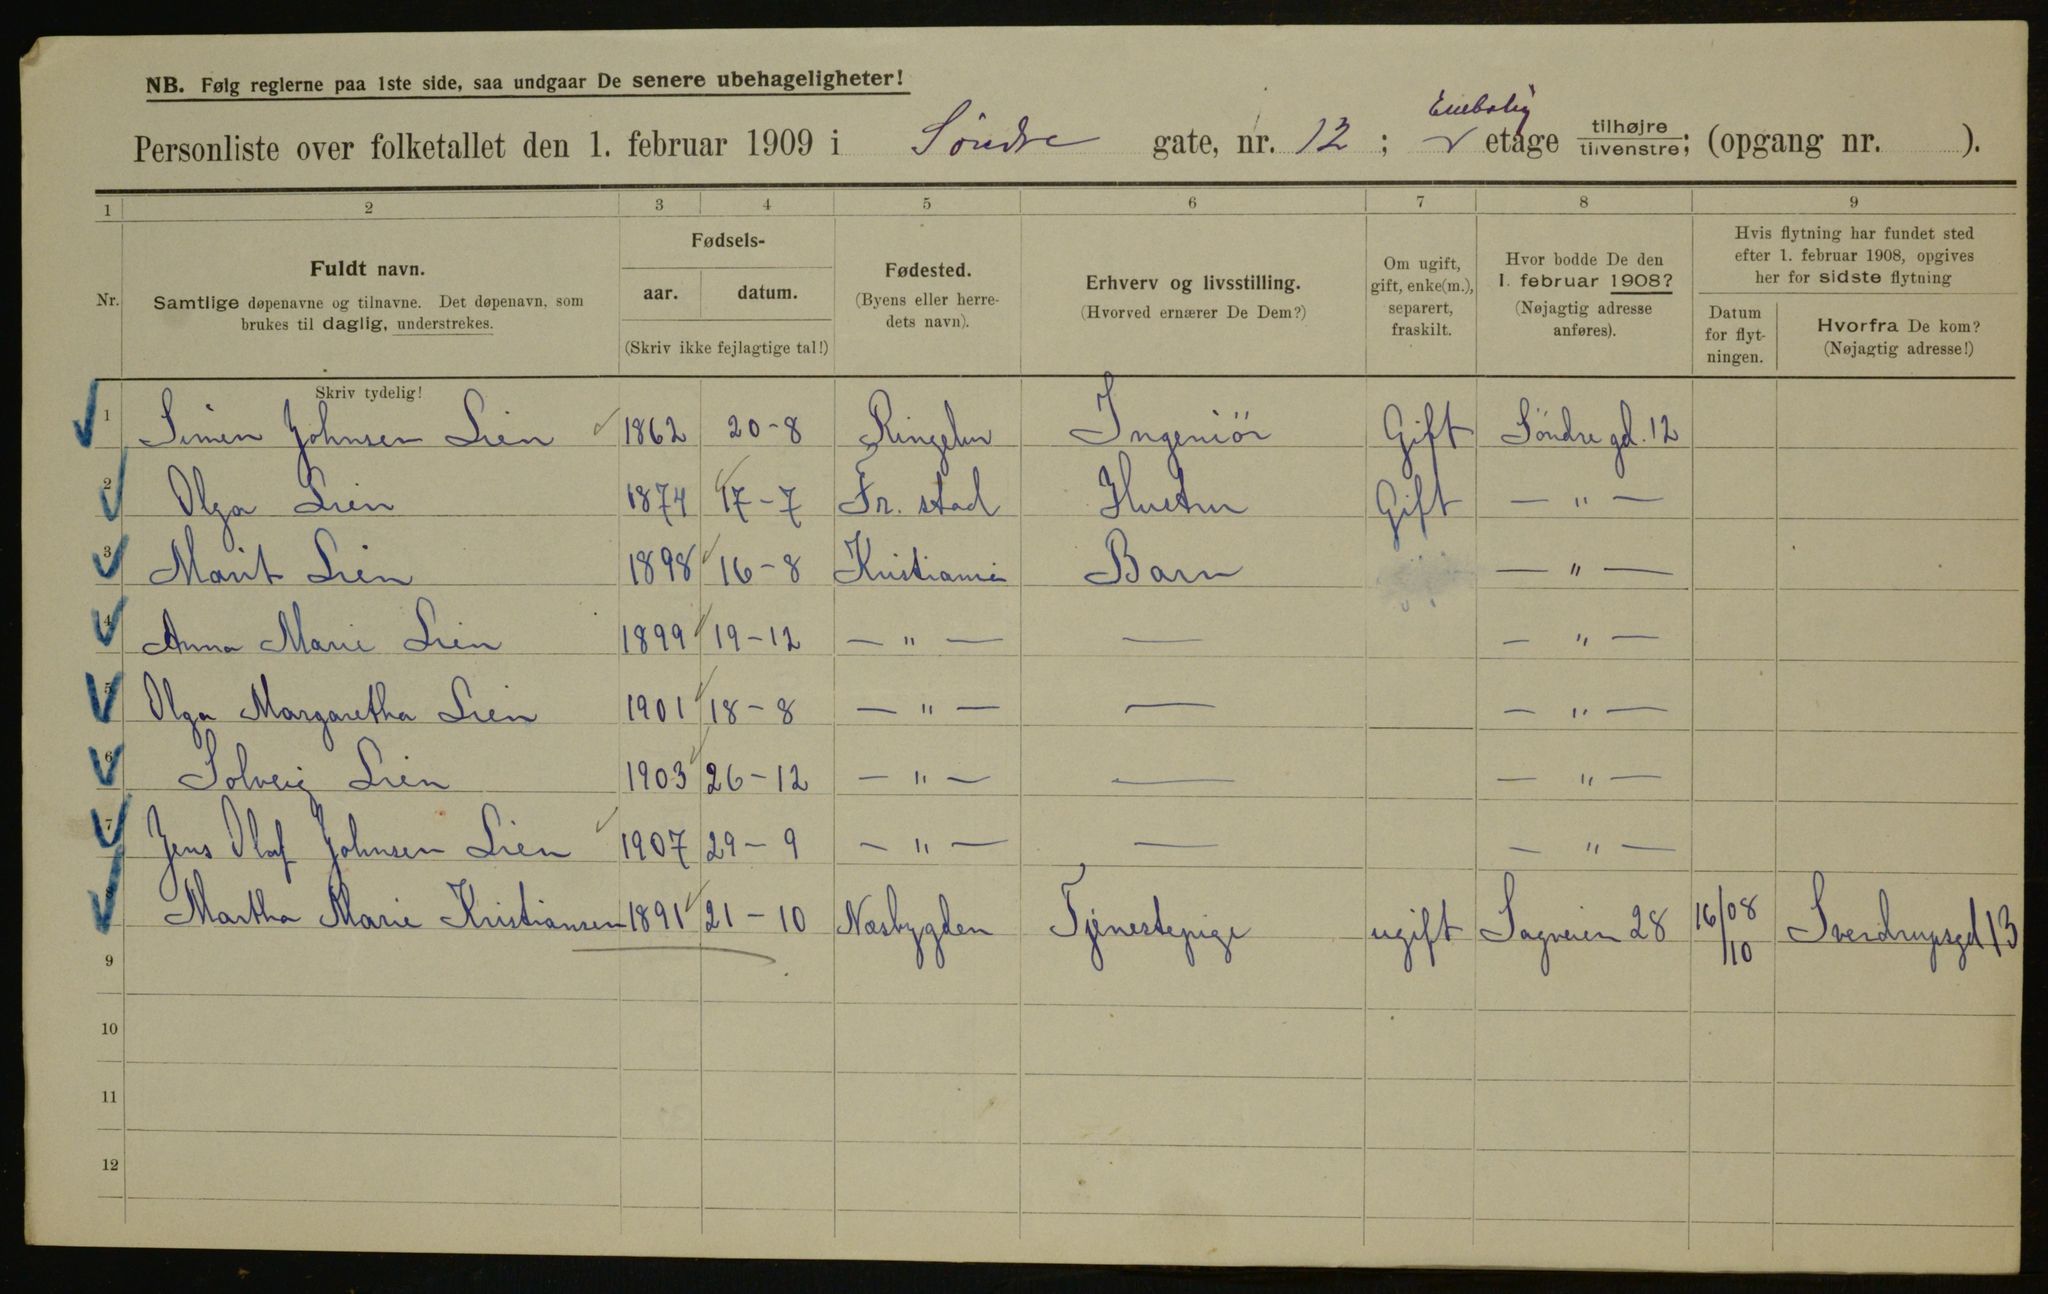 NB. Følg reglerne paa 1ste side, saa undgaar De senere ubehageligheter!
Personliste over folketallet den 1. februar 1909 i Söndre gate, nr. 12; etage tilhøjre tilvenstre; (opgang nr. ).
1 2 3 4 5 6 7 8 9
Nr. Fuldt navn. Samtlige døpenavne og tilnavne. Det døpenavn, som brukes til daglig, understrekes.
Fødsels- aar. datum. (Skriv ikke fejlagtige tal!)
Fødested. (Byens eller herredets navn).
Erhverv og livsstilling. (Hvorved ernærer De Dem?)
Om ugift, gift, enke(m.), separert, fraskilt.
Hvor bodde De den 1. februar 1908? (Nøjagtig adresse anføres).
Hvis flytning har fundet sted efter 1. februar 1908, opgives her for sidste flytning
Datum for flytningen. Hvorfra De kom? (Nøjagtig adresse!)
Skriv tydelig!
1 Simen Johnsen Lien 1862 20-8 Ingeniör Gift Söndre gd. 12
2 Olga Lien 1874 17-7 Fr. stad Hustru Gift — " —
3 Marit Lien 1898 16-8 Kristiania Barn — " —
4 Anna Marie Lien 1899 19-12 — " — — — " —
5 Olga Margaretha Lien 1901 18-8 — " — — — " —
6 Solveig Lien 1903 26-12 — " — — — " —
7 Jens Olaf Johnsen Lien 1907 29-9 — " — — — " —
8 Martha Marie Kristiansen 1891 21-10 Næsbygden Tjenestepige ugift Sagveien 28 16/10 08 Sverdrupsgd 13
9
10
11
12